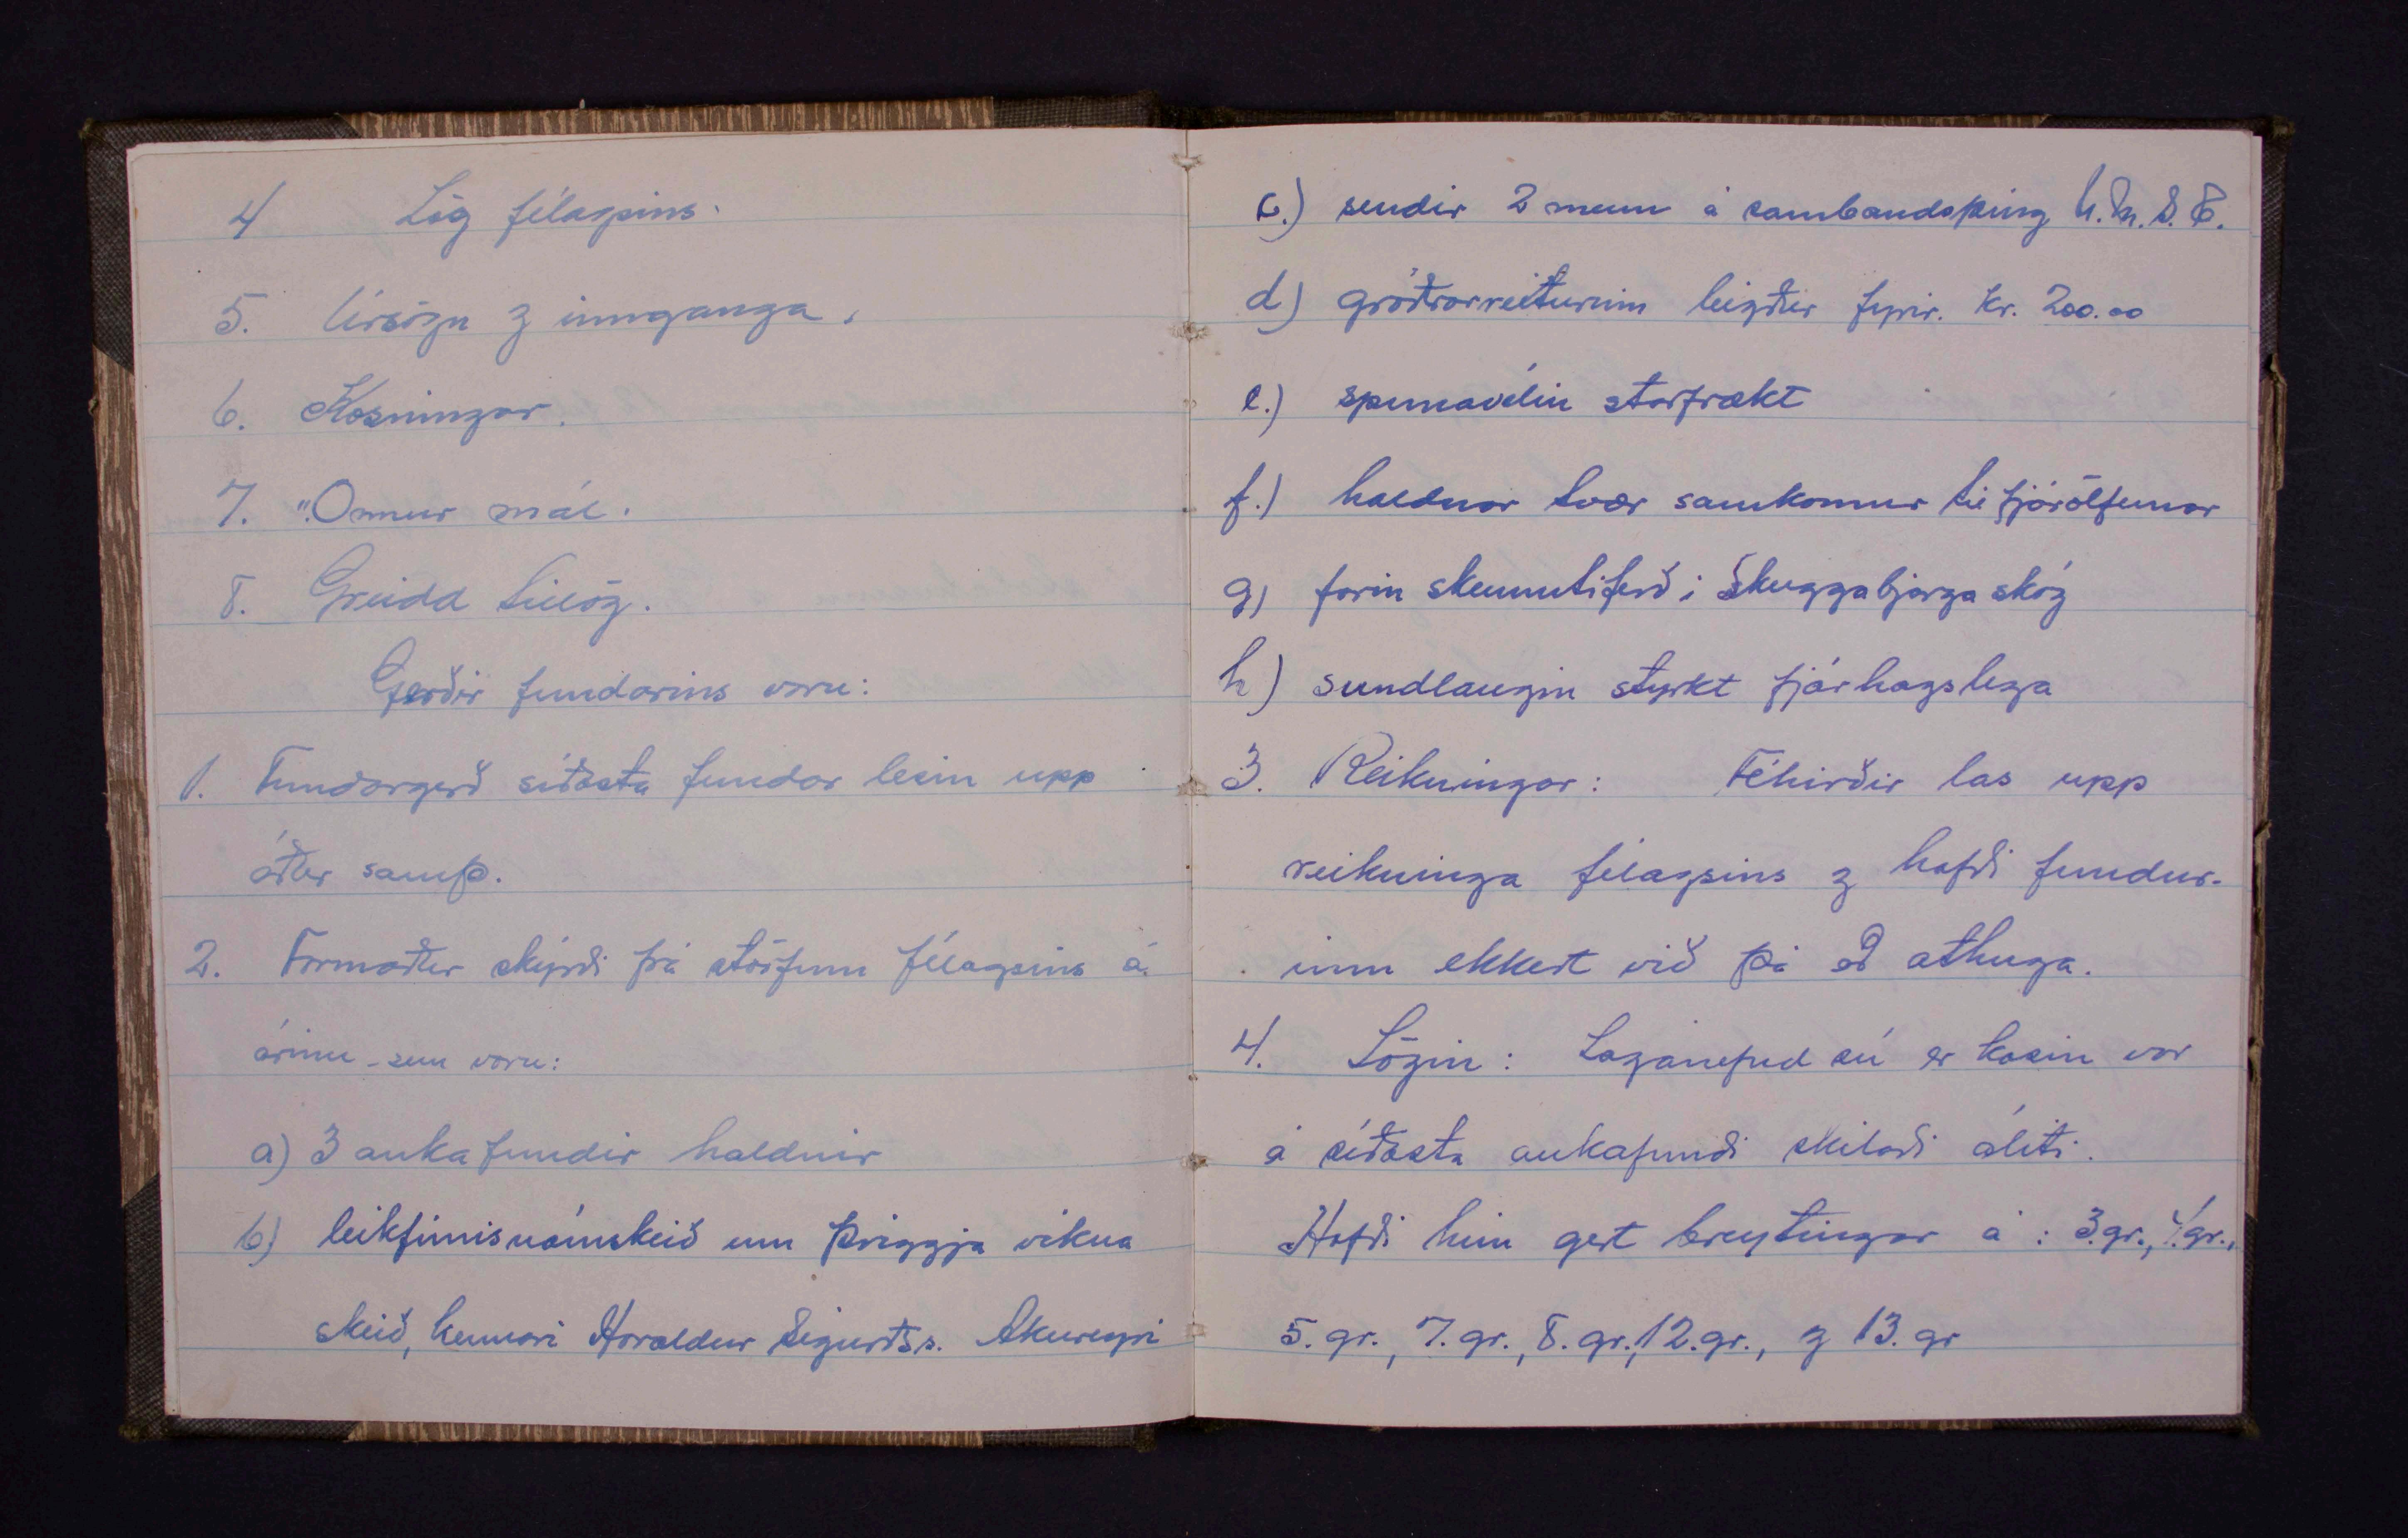 4 Lög félagsins.
5. Úrsögn & innganga.
6. Kosningar.
7. Önnur mál.
8. Greidd tillög.
Gerðir fundarins voru:
1. Fundargerð síðasta fundar lesin upp
óðar samþ.
2. Formaður skýrði frá störfum félagsins á
árinu - sem voru:
a) 3 aukafundir haldnir
b) leikfimisnámskeið um þriggja vikna
skeið, kennari Haraldur Sigurðss. Akureyri
c.) sendir 2 menn á sambandsþing U.M.S.E.
d) gróðrarreiturinn leigður fyrir. kr. 200.00
e.) spunavélin starfrækt
f.) haldnar tvær samkomur til fjáröflunar
g) farin skemmtiferð í Skuggabjargaskóg
h) sundlaugin styrkt fjárhagslega
3. Reikningar: Féhirðir las upp
reikninga félagsins & hafði fundur-
inn ekkert við þá að athuga.
4. Lögin: Laganefnd sú er kosin var
á síðasta aukafundi skilaði áliti.
Hafði hún gert breytingar á : 3.gr., 4.gr.,
5. gr., 7. gr., 8. gr., 12. gr., & 13. gr